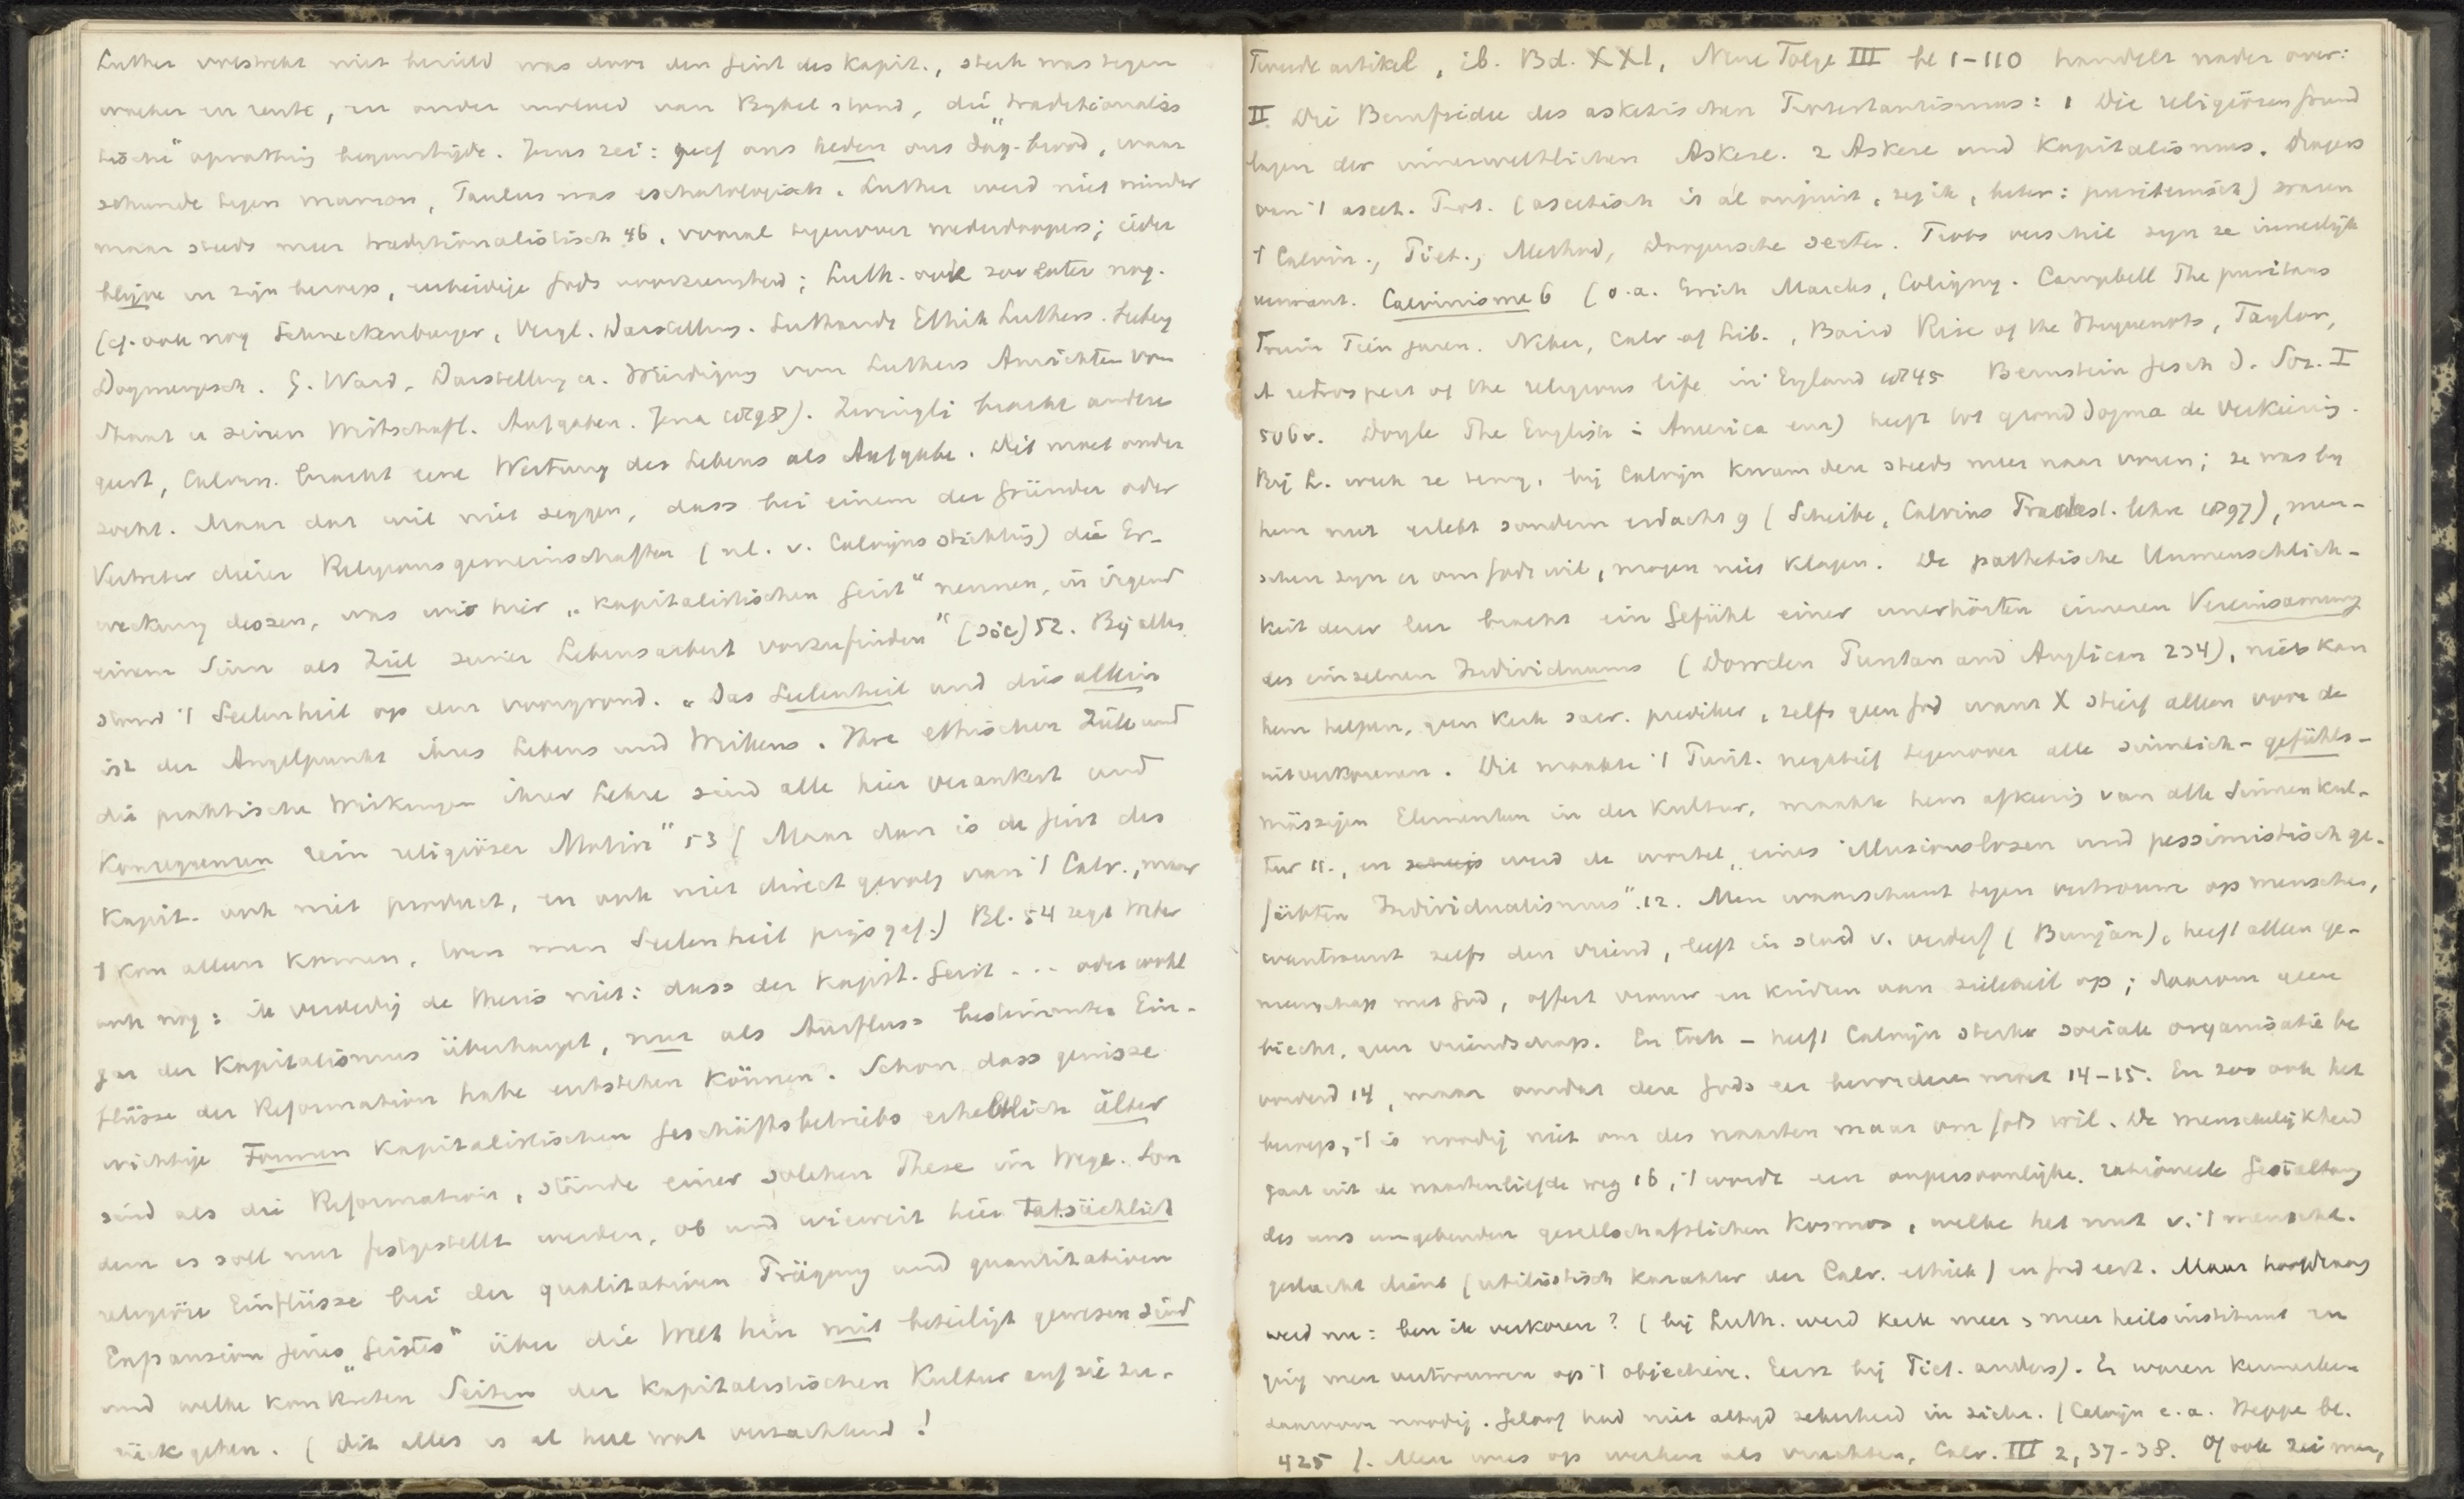 Luther verstrekt niet bewust was door den Geist des Kapit., sterk was tegen
woeker en rente, en onder invloed van Bybel stond, die "traditionalis
tische" opvatting begunstigde. Jezus zei: geef ons heden ons dag. brood, waar
schuwde tegen mamon, Paulus was eschatologisch. Luther werd niet minder
maar steeds meer traditionalistisch 46, vooral tegenover wederdoopers; ieder
blijve in zijn beroep, eerbiedige Gods voorzienigheid; Luth. ook zoo later nog.
(cf. ook nog Schneckenburger, Vergl. Darstellung. Luthardt Ethik Luthers. Seeberg
Dogmengesch. G. Ward, Darstellung u. Würdigung von Luthers Ansichten vom
Staat u seinen Wirtschaftl. Aufgaben. Jena 1898). Zwingli bracht andere
geest, Calvin. bracht eene Wertung des Lebens als Aufgabe. Dit moet onder
zocht. Maar dat wil niet zeggen, dass bei einem der Gründer oder
Vertreter dieser Religionsgemeinschaften (nl. v. Calvijns stichting) die Er-
weckung dessen, was wir hier "kapitalistischen Geist" nennen, in irgend
einem Sinn als Ziel seiner Lebensarbeit vorzufinden" (sic) 52. Bij allen
stond 't Seelenheil op den voorgrond. "Das Seelenheil und dies allein
ist der Angelpunkt ihres Lebens und Wirkens. Ihre ethischen Ziele und
die praktische Wirkungen ihrer Lehre sind alle hier verankert und
Konsequenzen rein religiöser Motive" 53 (Maar dan is de Geist des
Kapit. ook niet product, en ook niet direct gevolg van 't Calv., maar
't kon alleen komen, toen men Seelenheil prijs gaf.) Bl. 54 zegt Weber
ook nog: ik verdedig de thesis niet: dass der Kapit. Geist ... oder wohl
gar der Kapitalismus überhaupt, nur als Ausfluss bestimmter Ein-
flüsse der Reformation habe entstehen können. Schon dass gewisse
wichtige Formen kapitalistischen Geschäftsbetriebs erheblich älter
sind als die Reformation, stände einer solchen These im Wege. Son
dern es soll nur festgestellt werden, ob und wieweit hier tatsächlich
religiöse Einflüsse bei der qualitativen Prägung und quantitativen
Expansion jenes "Geistes" über die Welt hin mit beteiligt gewesen sind
und welche konkreten Seiten der kapitalistischen Kultur auf sie zu-
rückgehen. (Dit alles is al heel wat verzachtend!
Tweede artikel, ib. Bd. XXI, Neue Folge III bl 1-110 handelt nader over:
II. Die Berufsidee des asketischen Protestantismus: 1 Die religiösen Grund
lagen der innerweltlichen Askese. 2 Askese und Kapitalismus. Dragers
van 't ascet. Prot. (ascetisch is al onjuist, zeg ik, beter: puriteinsch) waren
't Calvin., Piet., Method, Doopersche secten. Trots verschil zyn ze innerlijk
verwant. Calvinisme 6 (o.a. Erich Marcks, Coligny. Campbell The puritans
Fruin Tien jaren. Neher, Calv of Lib., Baird Rise of the Huguenots, Taylor,
A retrospect of the religious life in England 1845 Bernstein Gesch d. Soz. I
506 v. Doyle The English in America enz) heeft tot gronddogma de verkiezing.
Bij L. week ze terug, bij Calvijn kwam deze steeds meer naar voren; ze was by
hem niet erlebt sondern erdacht 9 (Scheibe, Calvins Praedest. lehre 1897), men-
schen zyn er om Gods wil, mogen niet klagen. De pathetische Unmenschlich-
keit dezer leer bracht ein Gefühl einer unerhörten inneren Vereinsamung
des einzelnen Individuums (Dowden Puritan and Anglican 234), niets kon
hem helpen, geen kerk sacr. prediker, zelfs geen God want X stierf alleen voor de
uitverkorenen. Dit maakte 't Purit. negatief tegenover alle sinnlich-gefühls-
mässigen Elementen in der Kultur, maakte hem afkeerig van alle Sinnenkul-
tur 11., en werd de wortel "eines illusionslosen und pessimistisch ge-
färbten Individualismus". 12. Men waarschuwt tegen vertrouwen op menschen,
wantrouwt zelfs den vriend, leeft in stad v. verderf (Bunjan), heeft alleen ge-
meenschap met God, offert vrouw en kindren aan zieleheil op; daarom geen
biecht, geen vriendschap. En toch - heeft Calvijn sterke sociale organisatie be
vorderd 14, maar omdat deze Gods eer bevorderen moet 14-15. En zoo ook het
beroep, 't is noodig niet om des naasten maar om Gods wil. De menschelijkheid
gaat uit de naastenliefde weg 16, 't wordt een onpersoonlijke, rationeele Gestaltung
des uns umgebenden gesellschaftlichen Kosmos, welke het nut v. 't mensche.
geslacht dient (utilistisch karakter der Calv. ethiek) en God eert. Maar hoofdvraag
werd nu: ben ik verkoren? (bij Luth. werd kerk meer & meer heilsinstituut en
ging men vertrouwen op 't objectieve. Eerst bij Piet. anders). Er waren kenmerken
daarvoor noodig. Geloof had niet altyd zekerheid in zichz. (Calvijn e.a. Heppe bl.
425). Men wees op werken als vruchten, Calv. III 2, 37-38. Of ook zei men,